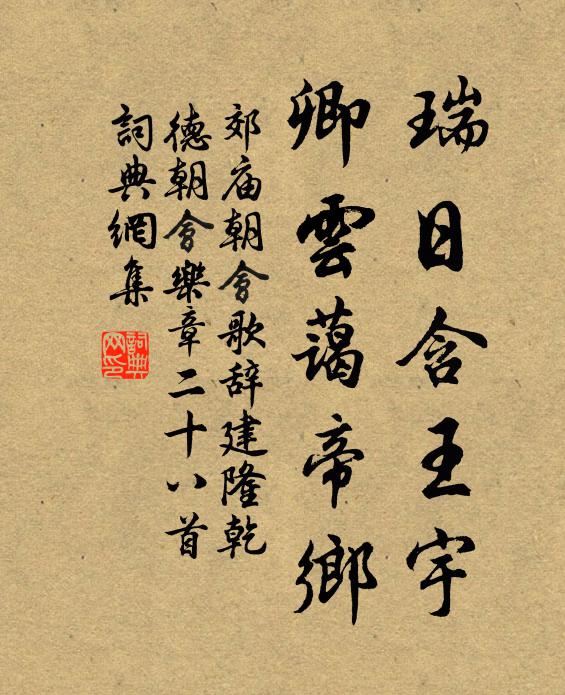 瑞日含王宇
卿雲藹帝鄉
郊庙朝會歌辞建隆乾
德朝會樂章二十八首
詞典網集
詞典网印